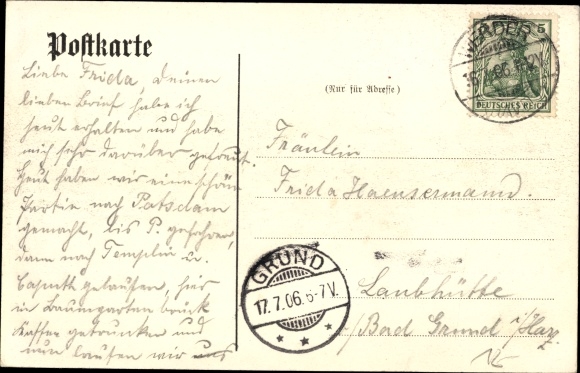 Postkarte
Liebe Frida, Deinen
lieben Brief habe ich
heut erhalten und habe
mich sehr darüber gefreut.
Heut haben wir eine schöne
Partie nach Potsdam
gemacht, bis P. gefahren,
dann nach Templin u.
Caputh gelaufen, hier
in Baumgartenbrück
Kaffee getrunken und
nun laufen wir
(Nur für Adresse)
WERDER
06
5
DEUTSCHES REICH
Fräulein
Frida Haensermann.
GRUND
17.7.06.6-7V.
Laubhütte
Bad Grund i/Harz